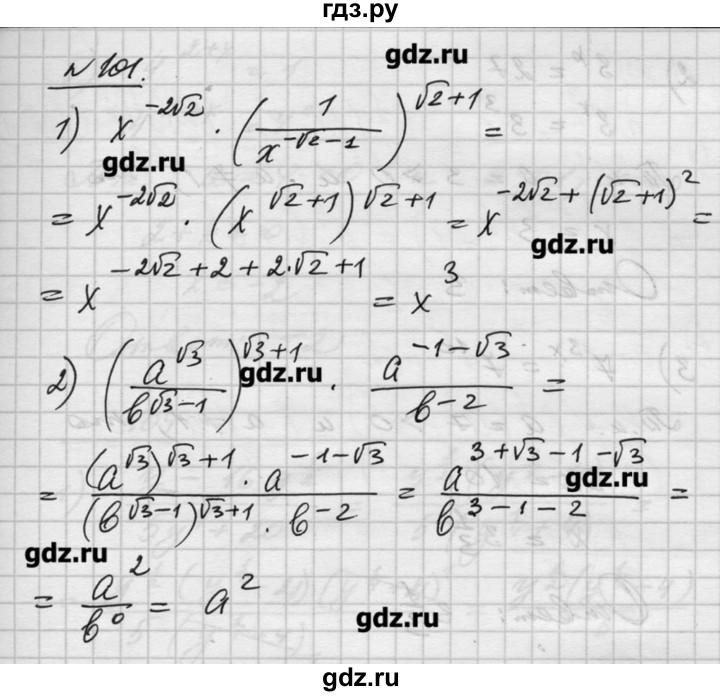 гдз.ру
gdz.ru
№101.
1) x^{-2√2} · (1/x^{-√2-1})^{√2+1} =
gdz.ru
= x^{-2√2} · (x^{√2+1})^{√2+1} = x^{-2√2+(√2+1)^2} =
gdz.ru
= x^{-2√2+2+2·√2+1} = x^3
2) (a^{√3}/b^{√3-1})^{√3+1} · a^{-1-√3}/b^{-2} =
gdz.ru
= (a^{√3})^{√3+1} · a^{-1-√3}/(b^{√3-1})^{√3+1} · b^{-2} = a^{3+√3-1-√3}/b^{3-1-2} =
gdz.ru
gdz.ru
= a^2/b^0 = a^2
gdz.ru
gdz.ru